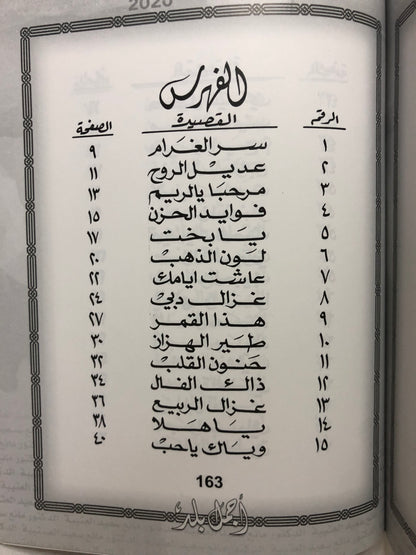 2020
الفهرس
الرقم القصيدة الصفحة
١ سر الغرام ٩
٢ عديل الروح ١١
٣ مرحبا يالريم ١٣
٤ فوايد الحزن ١٥
٥ يا بخت ١٧
٦ لون الذهب ٢٠
٧ عاشت ايامك ٢٢
٨ غزال دبي ٢٤
٩ هذا القمر ٢٧
١٠ طير الهزاز ٣٠
١١ حنون القلب ٣٢
١٢ ذاك الفال ٣٤
١٣ غزال الربيع ٣٦
١٤ يا هلا ٣٨
١٥ وياك ياحب ٤٠
163
أجمل بلد